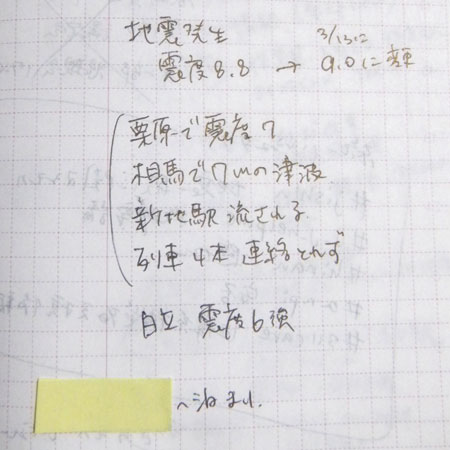 地震発生
3/13に
震度8.8 → 9.0に変
栗原で震度7
相馬で7mの津波
新地駅 流される
列車4本 連絡とれず
日立 震度6強
へ泊まり.